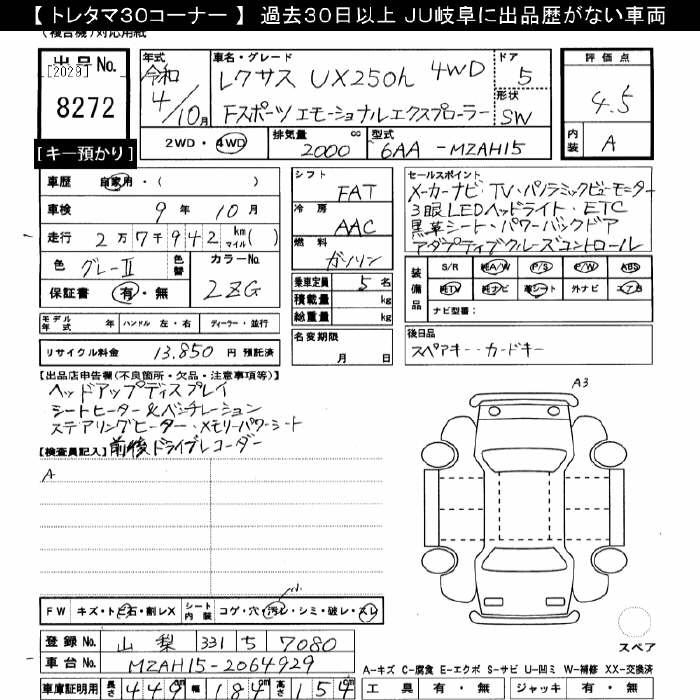 【 トレタマ30コーナー 】 過去30日以上 JU岐阜に出品歴がない車両
(複合機)対応用紙
出品No.
[2029]
8272
[キー預かり]
年式 令和 4/10月
車名・グレード レクサス UX250h 4WD
Fスポーツ エモーショナルエクスプローラー
ドア 5
形状 SW
2WD・4WD
排気量 cc 2000
型式 6AA-MZAH15
評価点 4.5
内装 A
車歴 自家用・( )
車検 9年 10月
走行 2万7千942 km マイル( )
色 グレーII 色替
カラーNo. 2ZG
保証書 有・無
モデル年式 年 ハンドル 左・右 ディーラー・並行
リサイクル料金 13,850 円 預託済
シフト FAT
冷房 AAC
燃料 ガソリン
乗車定員 5名
積載量 kg
総重量 kg
名変期限 月 日
セールスポイント
メーカーナビ・TV・パノラミックビューモニター
3眼LEDヘッドライト・ETC
黒革シート・パワーバックドア
アダプティブクルーズコントロール
装備品
S/R 純A/W P/S P/W ABS
純TV 純ナビ 革シート 外ナビ エアB
ナビ型番:
後日品
スペアキー・カードキー
【出品店申告欄(不良箇所・欠品・注意事項等)】
ヘッドアップディスプレイ
シートヒーター&ベンチレーション
ステアリングヒーター・メモリパワーシート
前後ドライブレコーダー
【検査員記入】
A
A3
FW キズ・ト石・割レX シート内装 コゲ・穴・汚レ・シミ・破レ・スレ
登録No. 山梨 331 5 7080
車台No. MZAH15-2064929
車庫証明用 長さ 449cm 幅 184cm 高さ 154cm
スペア
A-キズ C-腐食 E-エクボ S-サビ U-凹ミ W-補修 XX-交換済
工具 有・無 ジャッキ 有・無